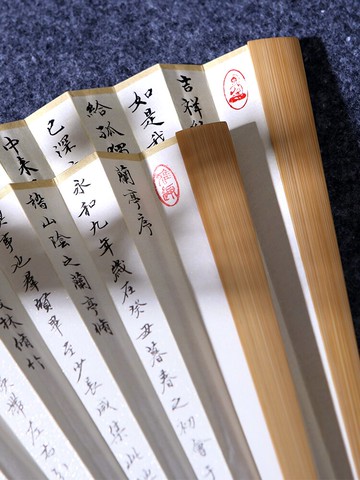 吉祥
如是我
給孤獨
已深
中来
蘭亭序
永和九年歲在癸丑暮春之初會于
稽山陰之蘭亭脩
事也羣賢畢至少長咸集此地
林脩竹
帶左右引